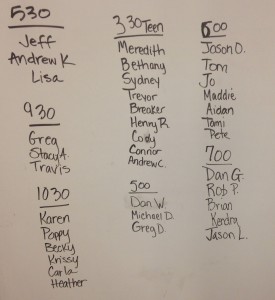 530
Jeff
Andrew K
Lisa
930
Greg
Stacy A.
Travis
1030
Karen
Poppy
Becky
Krissy
Carla
Heather
330 Teen
Meredith
Bethany
Sydney
Trevor
Breaker
Henry R.
Cody
Connor
Andrew C.
500
Don W.
Michael D.
Greg D.
600
Jason O.
Tom
Jo
Maddie
Aidan
Tami
Pete
700
Dan G.
Rob P.
Brian
Kendra
Jason L.